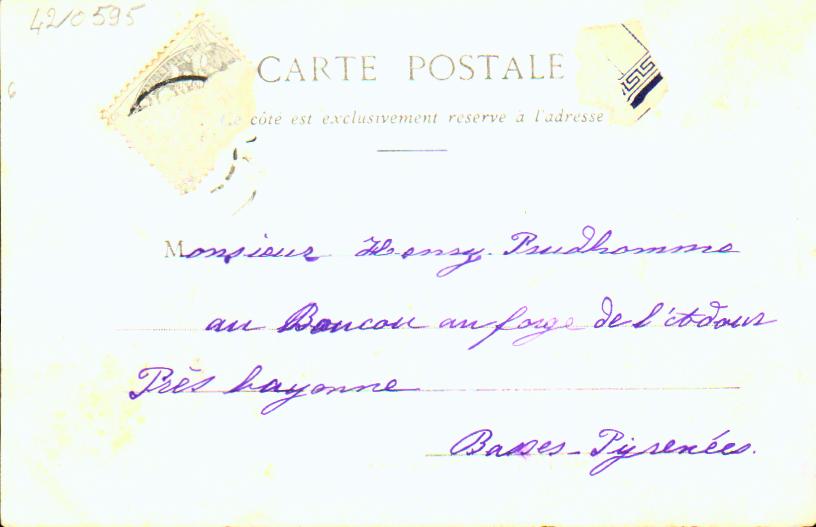 42/0595
CARTE POSTALE
Ce côté est exclusivement réservé à l'adresse
Monsieur Henry Prudhomme
au Boucou au forge de l'Adour
Près bayonne
Basses-Pyrenées.